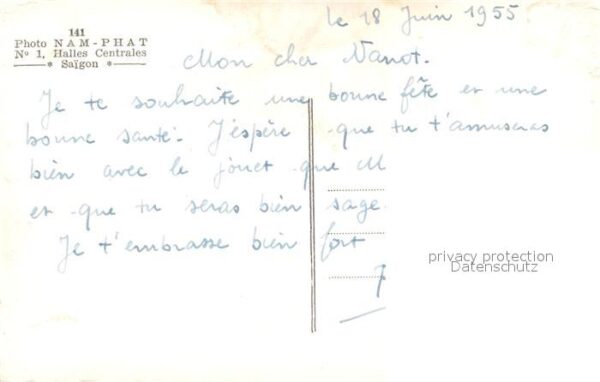 141
Photo NAM-PHAT
Nº 1, Halles Centrales
* Saïgon *
le 18 Juin 1955
Mon cher Nanot.
Je te souhaite une bonne fête et une
bonne santé. J'espère que tu t'amuseras
bien avec le jouet que M
et que tu seras bien sage.
Je t'embrasse bien fort
privacy protection
Datenschutz